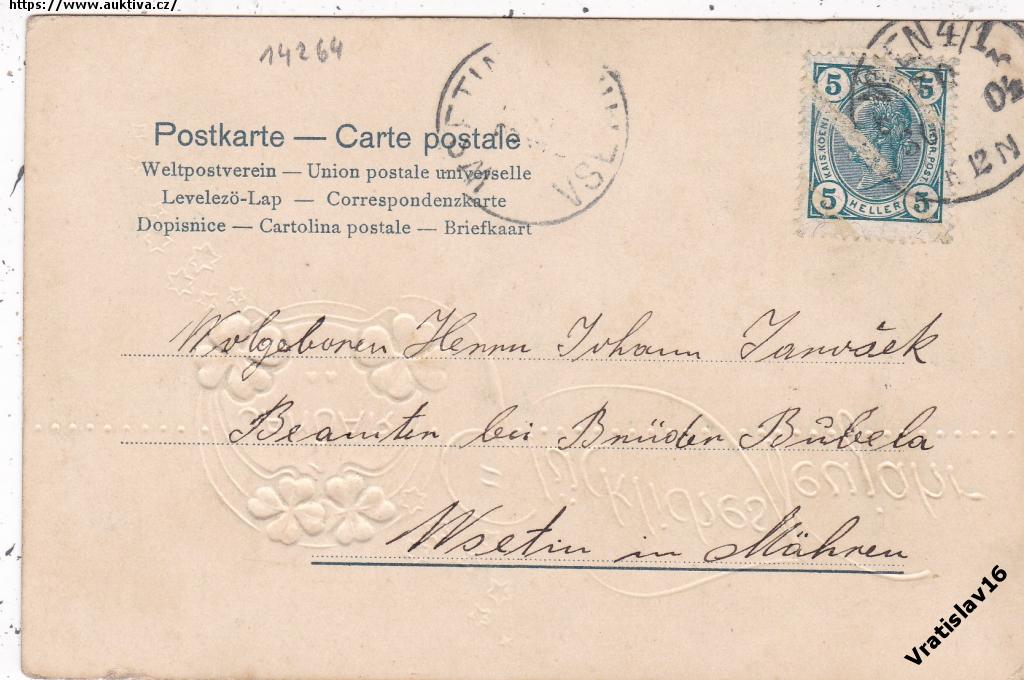 https://www.auktiva.cz/
14264
Postkarte — Carte postale
Weltpostverein — Union postale universelle
Levelezö-Lap — Correspondenzkarte
Dopisnice — Cartolina postale — Briefkaart
WSETIN
VSE
5 5
KAIS. KOENIGL. OESTERR. POST
5 HELLER 5
4/1
04
12 N
Wolgeboren Herrn Johann Janošek
Beamter bei Brüder Bubela
Wsetin in Mähren
JANUAR
Glückliches Neujahr
Vratislav16